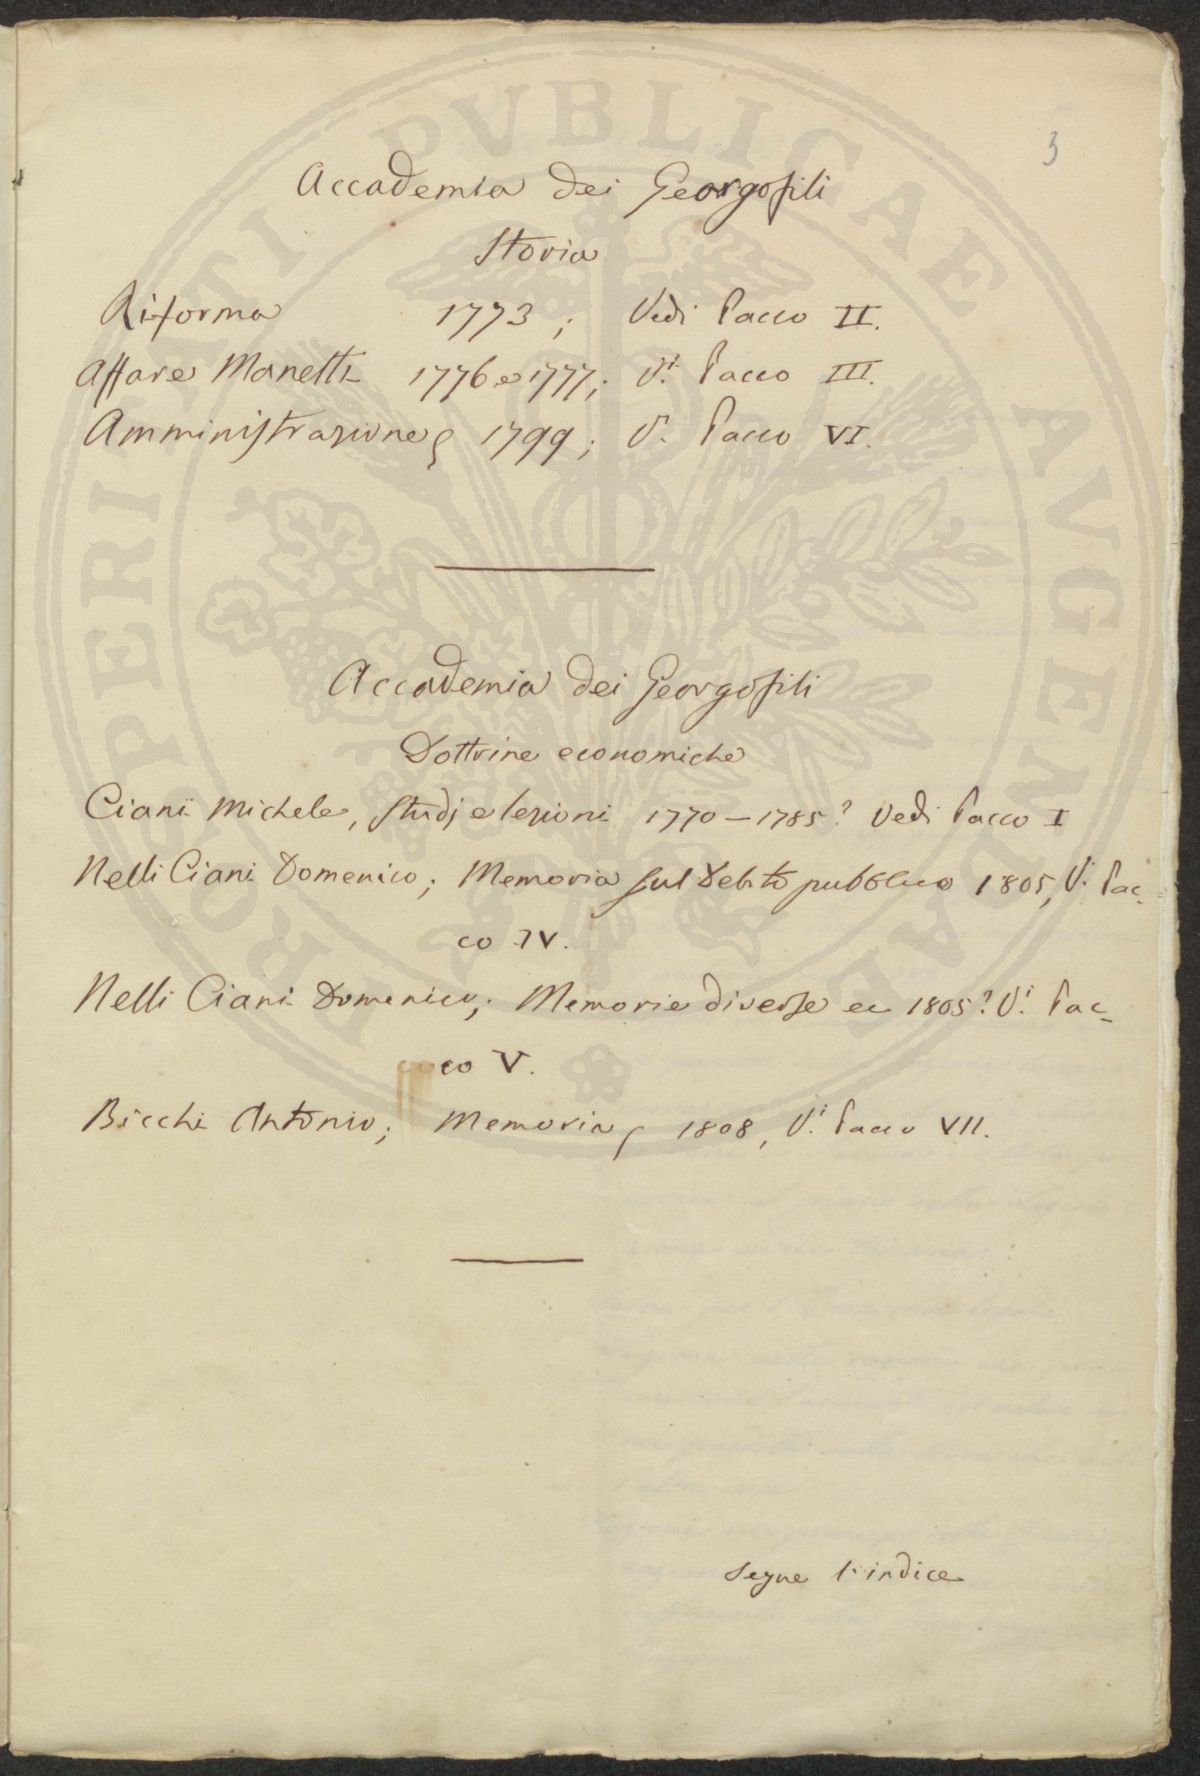 3
Accademia dei Georgofili
Storia
Riforma 1773; Vedi Pacco II.
Affare Manetti 1776 e 1777; Vi. Pacco III.
Amministrazione, 1799; V. Pacco VI.
Accademia dei Georgofili
Dottrine economiche
Ciani Michele, Studj e lezioni 1770–1785? Vedi Pacco I
Nelli Ciani Domenico; Memoria sul Debito pubblico 1805, Vi. Pac-
co IV.
Nelli Ciani Domenico; Memorie diverse ec 1805? Vi. Pac-
co V.
Bicchi Antonio; Memoria, 1808, Vi. Pacco VII.
Segue l'indice
PROSPERITATI PVBLICAE AVGENDAE